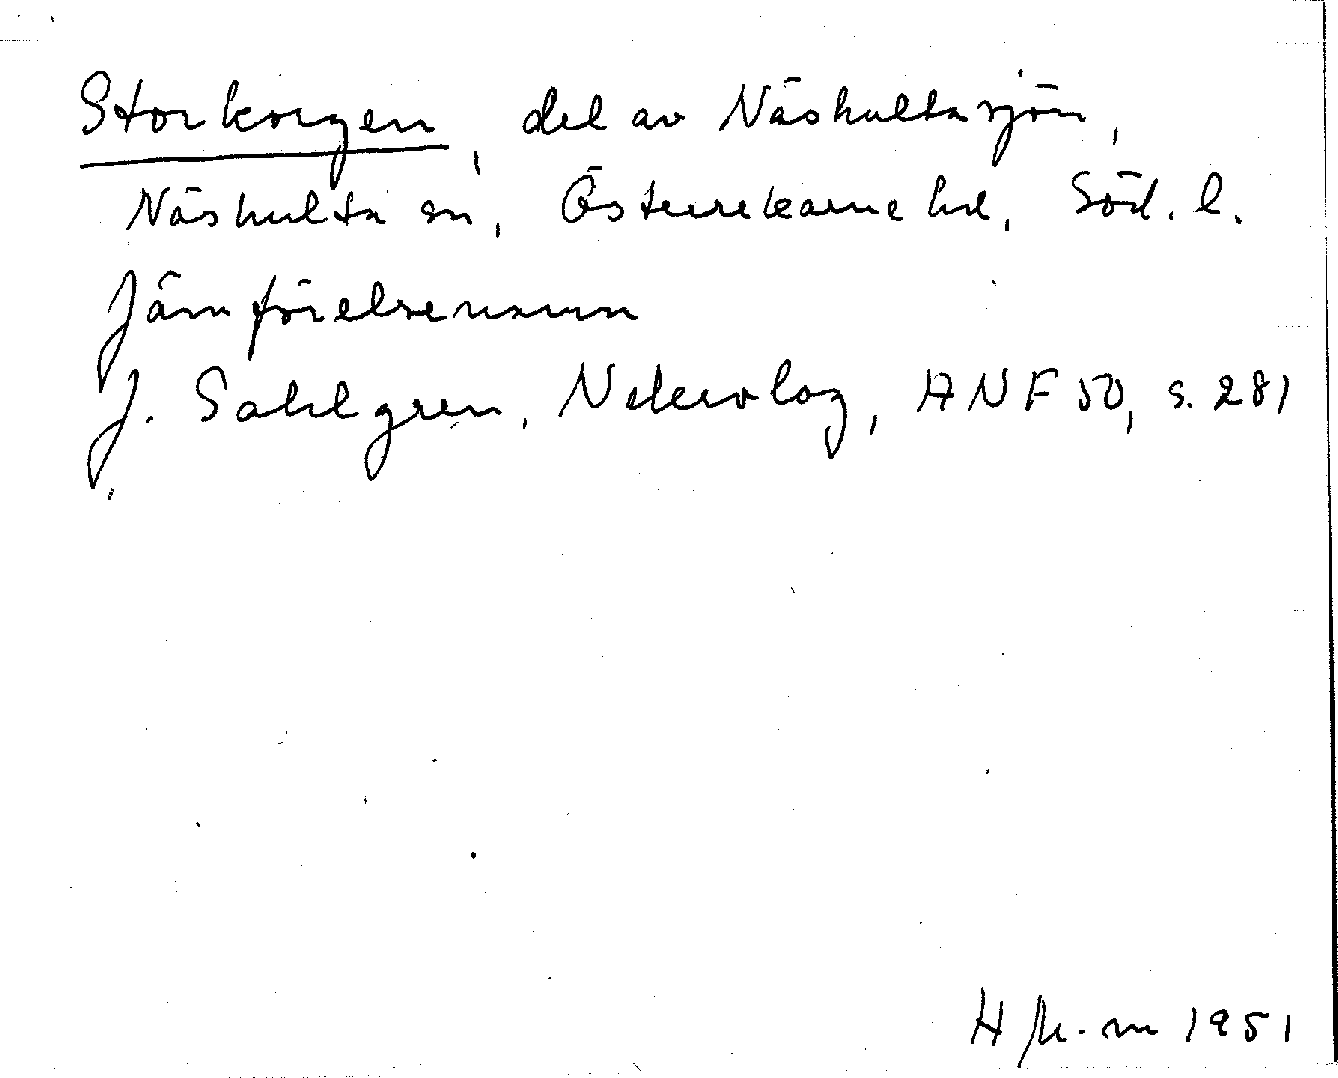 Storkorgen, del av Näshultasjön,
Näshulta sn, Österrekarne hd, Söd. l.
Jämförelsenamn
J. Sahlgren, Nekrolog, ANF 50, s. 281
H 1951